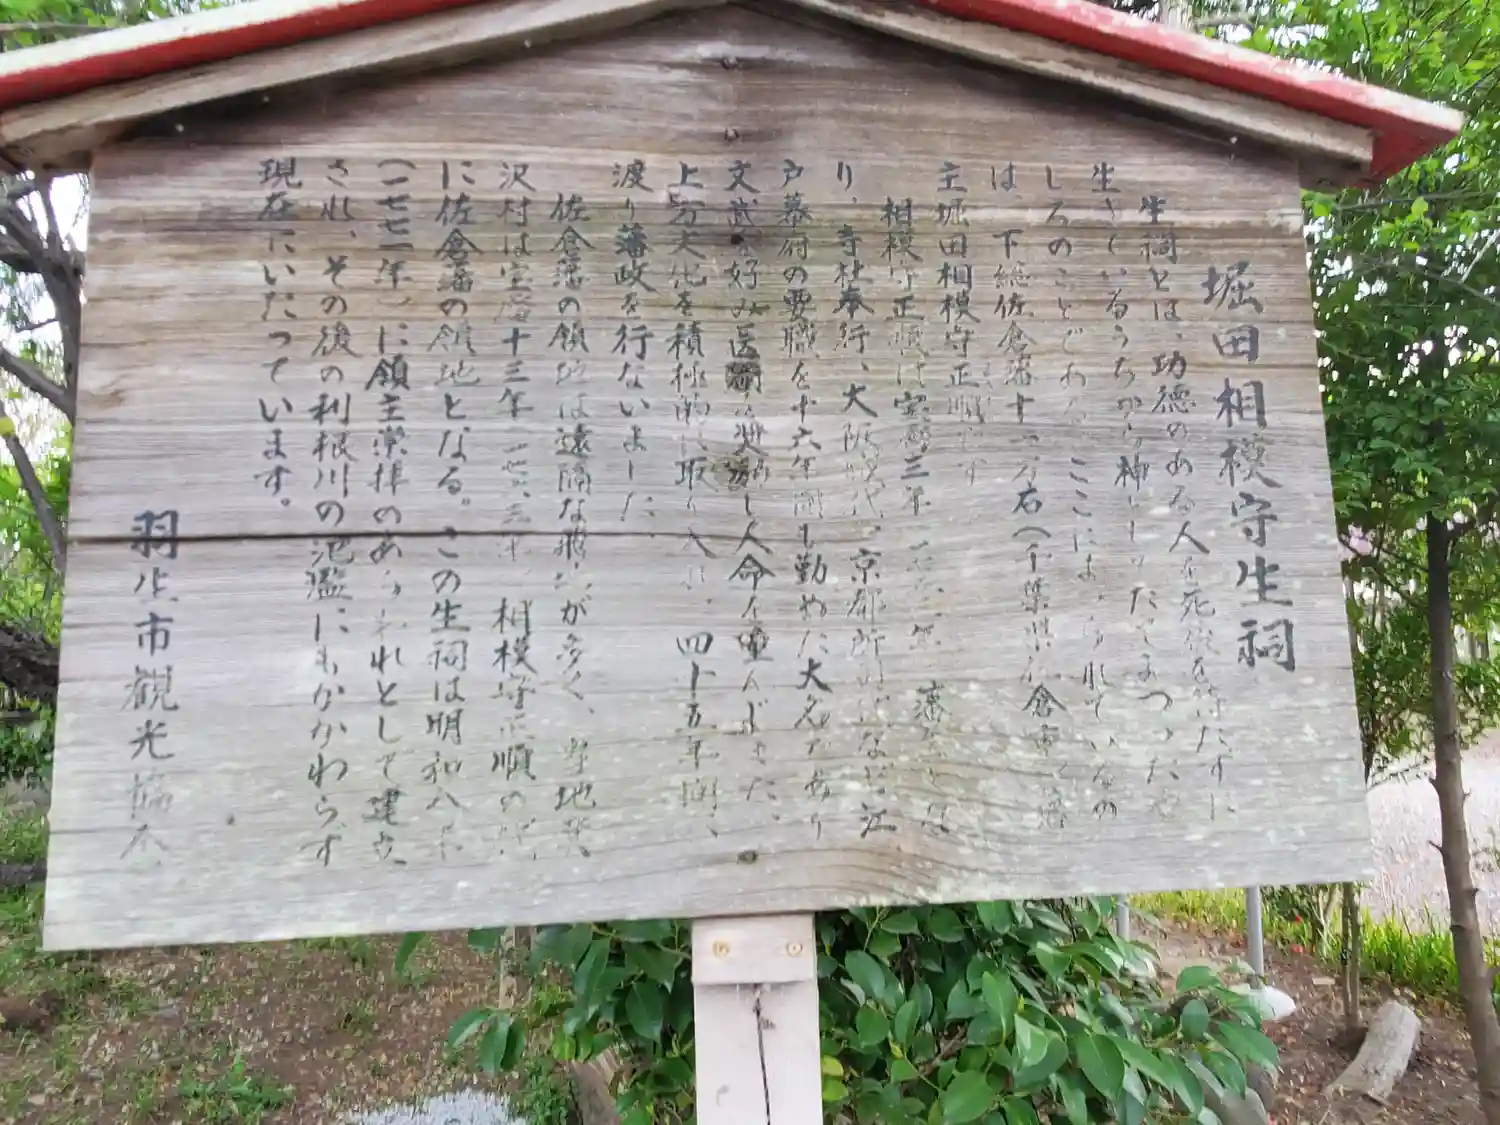 堀田相模守生祠
生祠とは、功徳のある人を死後を待たずに
生きているうちから神としてたてまつったお
しろのことである。ここにまつられているの
は、下総佐倉藩十一万石(千葉県佐倉市)藩
主堀田相模守正順です
相模守正順は宝暦三年 藩主とな
り、寺社奉行、大阪城代、京都所司代など江
戸幕府の要職を十六年間も勤めた大名であり
文武を好み医 し人命を重んじまた、
上方文化を積極的に取り入れ、四十五年間、
渡り藩政を行ないました。
佐倉藩の領地は遠隔な飛地が多く、当地
沢村は宝暦十三年 相模守正順の代
に佐倉藩の領地となる。この生祠は明和八年
(一七七一年)に領主崇拝のあらわれとして建立
され、その後の利根川の氾濫にもかかわらず
現在にいたっています。
羽生市観光協会